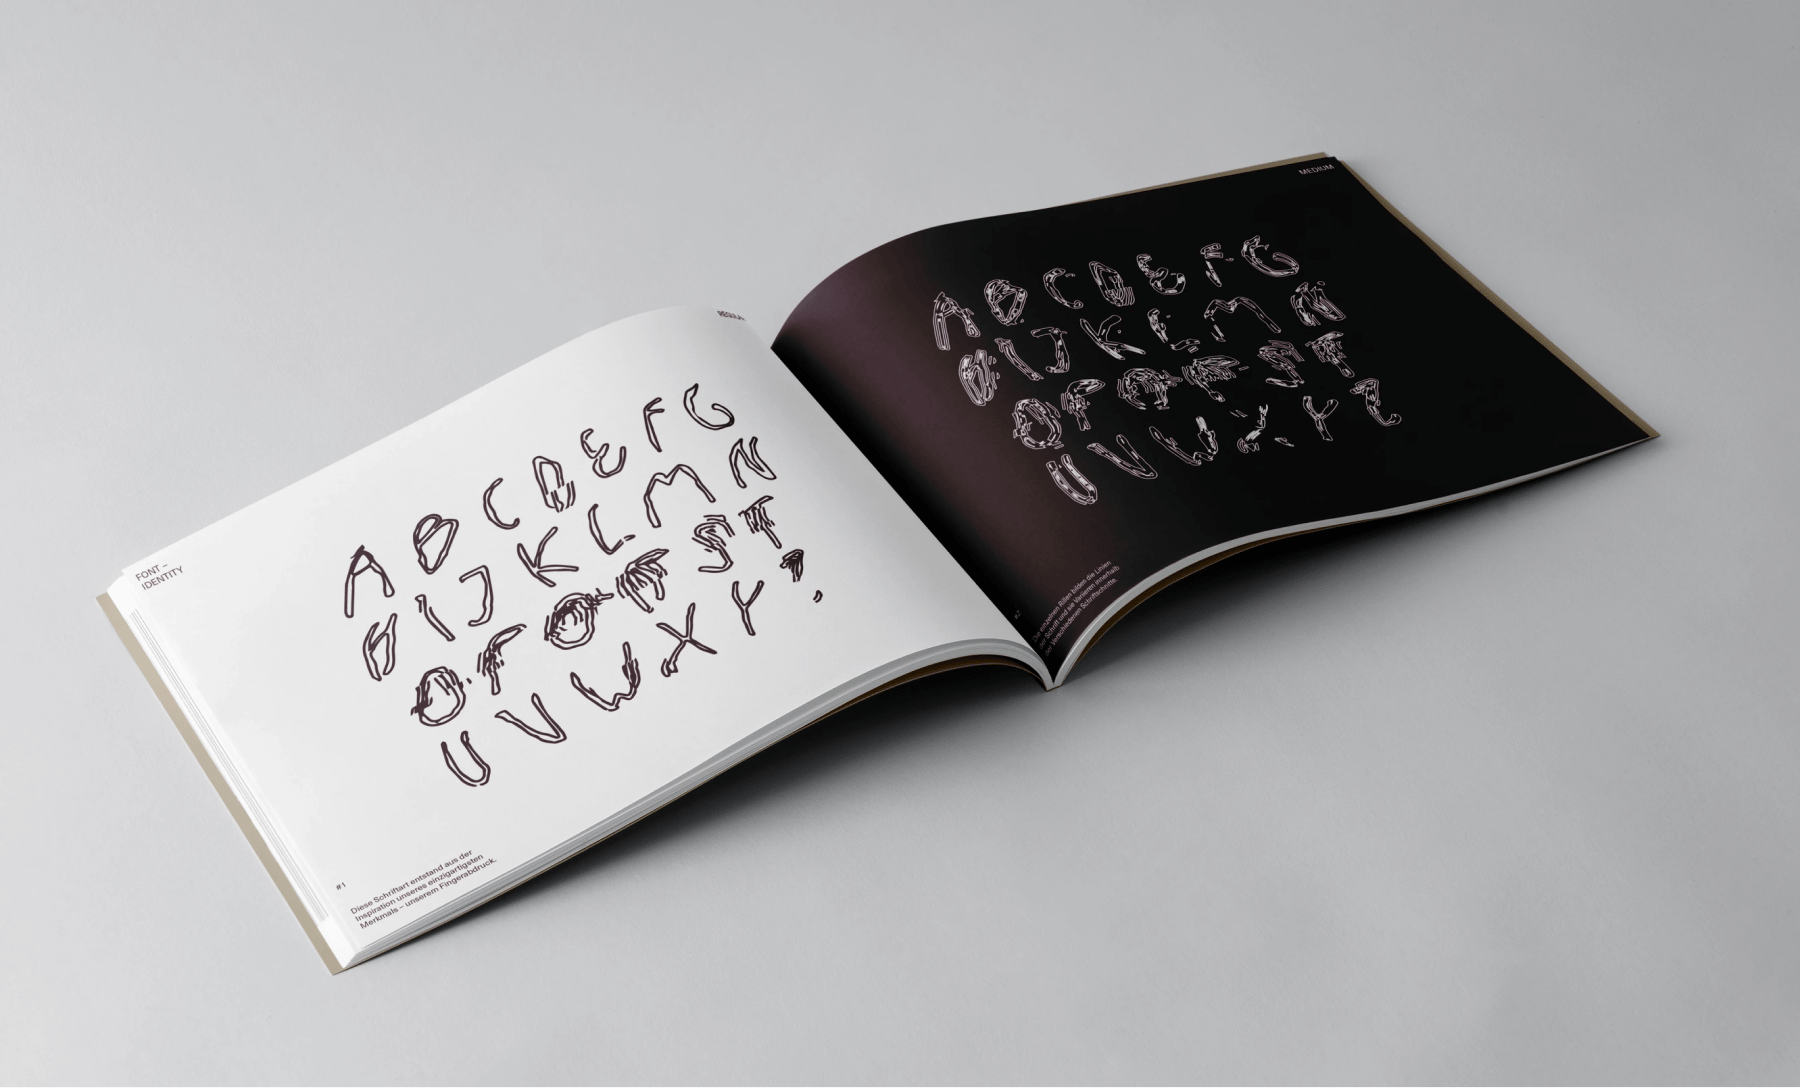 FONT –
IDENTITY
REGULAR
A B C D E F G
H I J K L M N
O P Q R S T
U V W X Y Z
#1
Diese Schriftart entstand aus der
Inspiration unseres einzigartigsten
Merkmals – unserem Fingerabdruck.
MEDIUM
A B C D E F G
H I J K L M N
O P Q R S T
U V W X Y Z
#2
Die einzelnen Rillen bilden die Linien
der Schrift und sie Variieren innerhalb
der Verschiedenen Schriftschnitte.